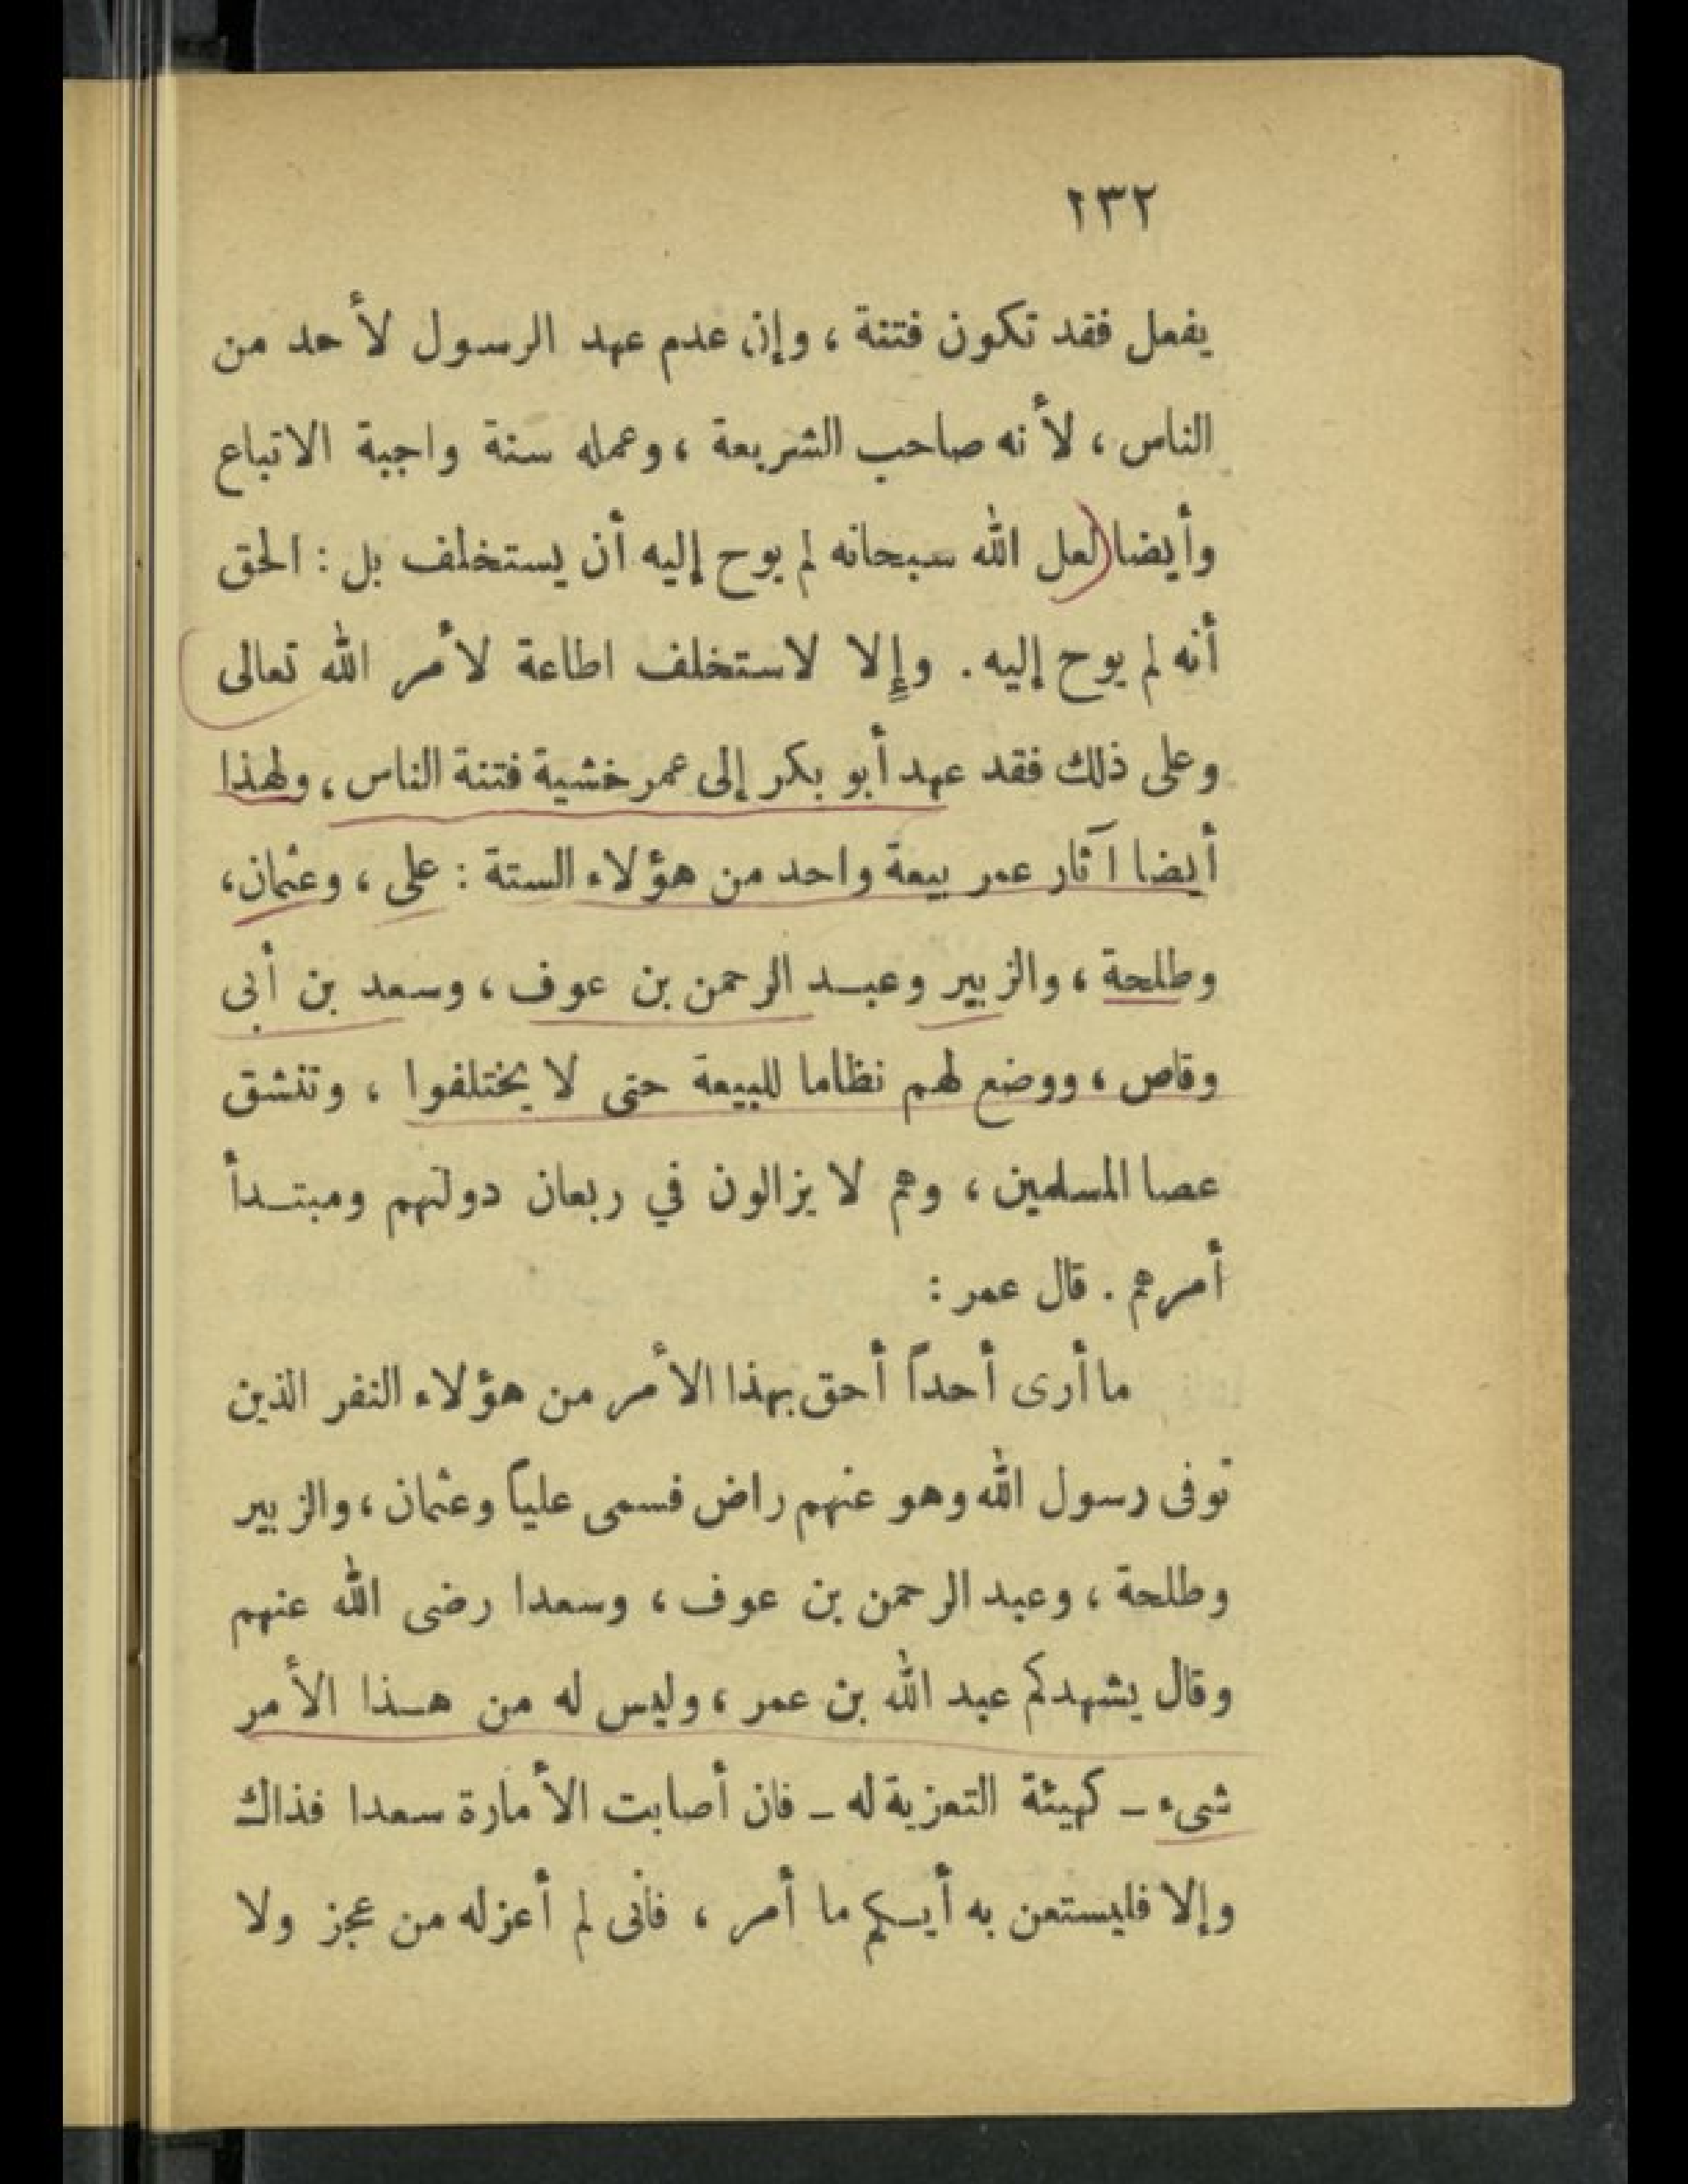 ٢٣٢
يفعل فقد تكون فتنة ، وإن عدم عهد الرسول لأحد من
الناس ، لأنه صاحب الشريعة ، وعمله سنة واجبة الاتباع
وأيضا لعل الله سبحانه لم يوح إليه أن يستخلف بل : الحق
أنه لم يوح إليه . وإلا لاستخلف اطاعة لأمر الله تعالى
وعلى ذلك فقد عهد أبو بكر إلى عمر خشية فتنة الناس ، ولهذا
أيضا آثار عمر بيعة واحد من هؤلاء الستة : على ، وعثمان ،
وطلحة ، والزبير وعبد الرحمن بن عوف ، وسعد بن أبى
وقاص ، ووضع لهم نظاما للبيعة حتى لا يختلفوا ، وتنشق
عصا المسلمين ، وهم لا يزالون في ريعان دولتهم ومبتدأ
أمرهم . قال عمر :
ما أرى أحداً أحق بهذا الأمر من هؤلاء النفر الذين
توفى رسول الله وهو عنهم راض فسمى علياً وعثمان ، والزبير
وطلحة ، وعبد الرحمن بن عوف ، وسعدا رضى الله عنهم
وقال يشهدكم عبد الله بن عمر ، وليس له من هذا الأمر
شىء – كهيئة التعزية له – فان أصابت الأمارة سعدا فذاك
وإلا فليستعن به أيكم ما أمر ، فأنى لم أعزله من عجز ولا